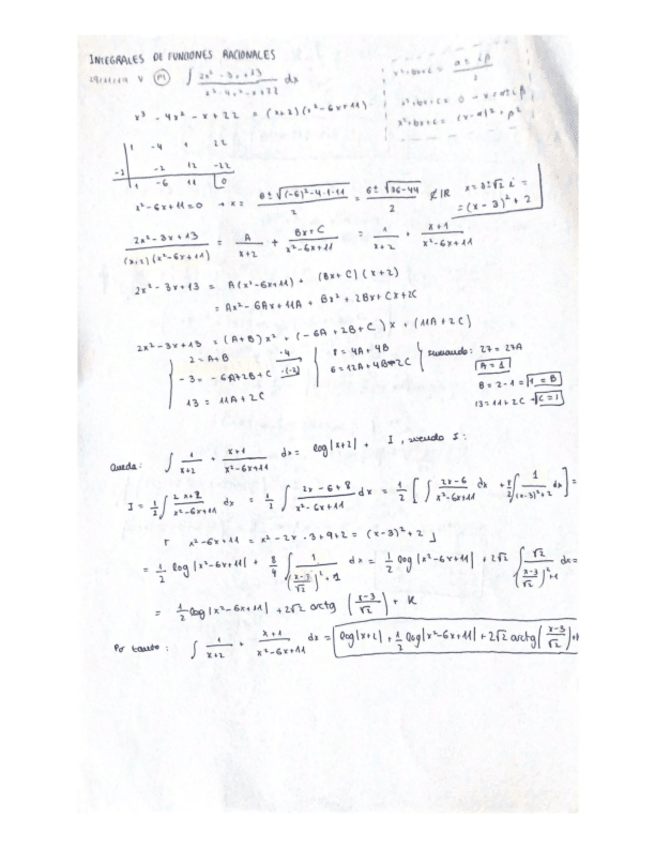 INTEGRALES DE FUNCIONES RACIONALES
∫ (2x² - 3x + 13)/(x³ - 4x² - x + 22) dx
x³ - 4x² - x + 22 = (x+2)(x² - 6x + 11)
1 -4 -1 22
-2 -2 12 -22
1 -6 11 0
x² - 6x + 11 = 0 → x = (6 ± √((-6)² - 4·1·11))/2 = (6 ± √(36-44))/2 ∉ IR x = 3 ± √2 i =
= (x - 3)² + 2
(2x² - 3x + 13)/((x+2)(x² - 6x + 11)) = A/(x+2) + (Bx + C)/(x² - 6x + 11) = 1/(x+2) + (x+1)/(x² - 6x + 11)
2x² - 3x + 13 = A(x² - 6x + 11) + (Bx + C)(x + 2)
= Ax² - 6Ax + 11A + Bx² + 2Bx + Cx + 2C
2x² - 3x + 13 = (A+B)x² + (-6A + 2B + C)x + (11A + 2C)
2 = A+B 8 = 4A + 4B sumando: 27 = 27A
-3 = -6A + 2B + C A = 1
13 = 11A + 2C B = 2 - 1 = 1 = B
13 = 11 + 2C C = 1
Queda: ∫ 1/(x+2) + (x+1)/(x² - 6x + 11) dx = log|x+2| + I, siendo I:
I = 1/2 ∫ (2x + 2)/(x² - 6x + 11) dx = 1/2 ∫ (2x - 6 + 8)/(x² - 6x + 11) dx = 1/2 [ ∫ (2x - 6)/(x² - 6x + 11) dx + ∫ 1/((x-3)² + 2) dx ] =
x² - 6x + 11 = x² - 2x · 3 + 9 + 2 = (x - 3)² + 2
= 1/2 log|x² - 6x + 11| + 8/4 ∫ 1/(((x-3)/√2)² + 1) dx = 1/2 log|x² - 6x + 11| + 2√2 ∫ √2/(((x-3)/√2)² + 1) dx =
= 1/2 log|x² - 6x + 11| + 2√2 arctg((x-3)/√2) + K
Por tanto: ∫ 1/(x+2) + (x+1)/(x² - 6x + 11) dx = log|x+2| + 1/2 log|x² - 6x + 11| + 2√2 arctg((x-3)/√2) +